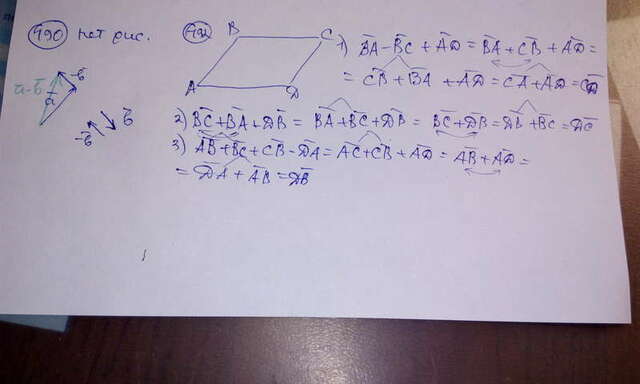 490 нет рис.
ā-b̄
-b̄
ā
b̄
-b̄
492
B
C
A
D
1) B̄A - B̄C + ĀD = B̄A + C̄B + ĀD =
= C̄B + B̄A + ĀD = C̄A + ĀD = C̄D
2) B̄C + B̄A + D̄B = B̄A + B̄C + D̄B = B̄C + D̄B = D̄B + B̄C = D̄C
3) ĀB + B̄C + C̄B - D̄A = ĀC + C̄B + ĀD = ĀB + ĀD =
= D̄A + ĀB = D̄B